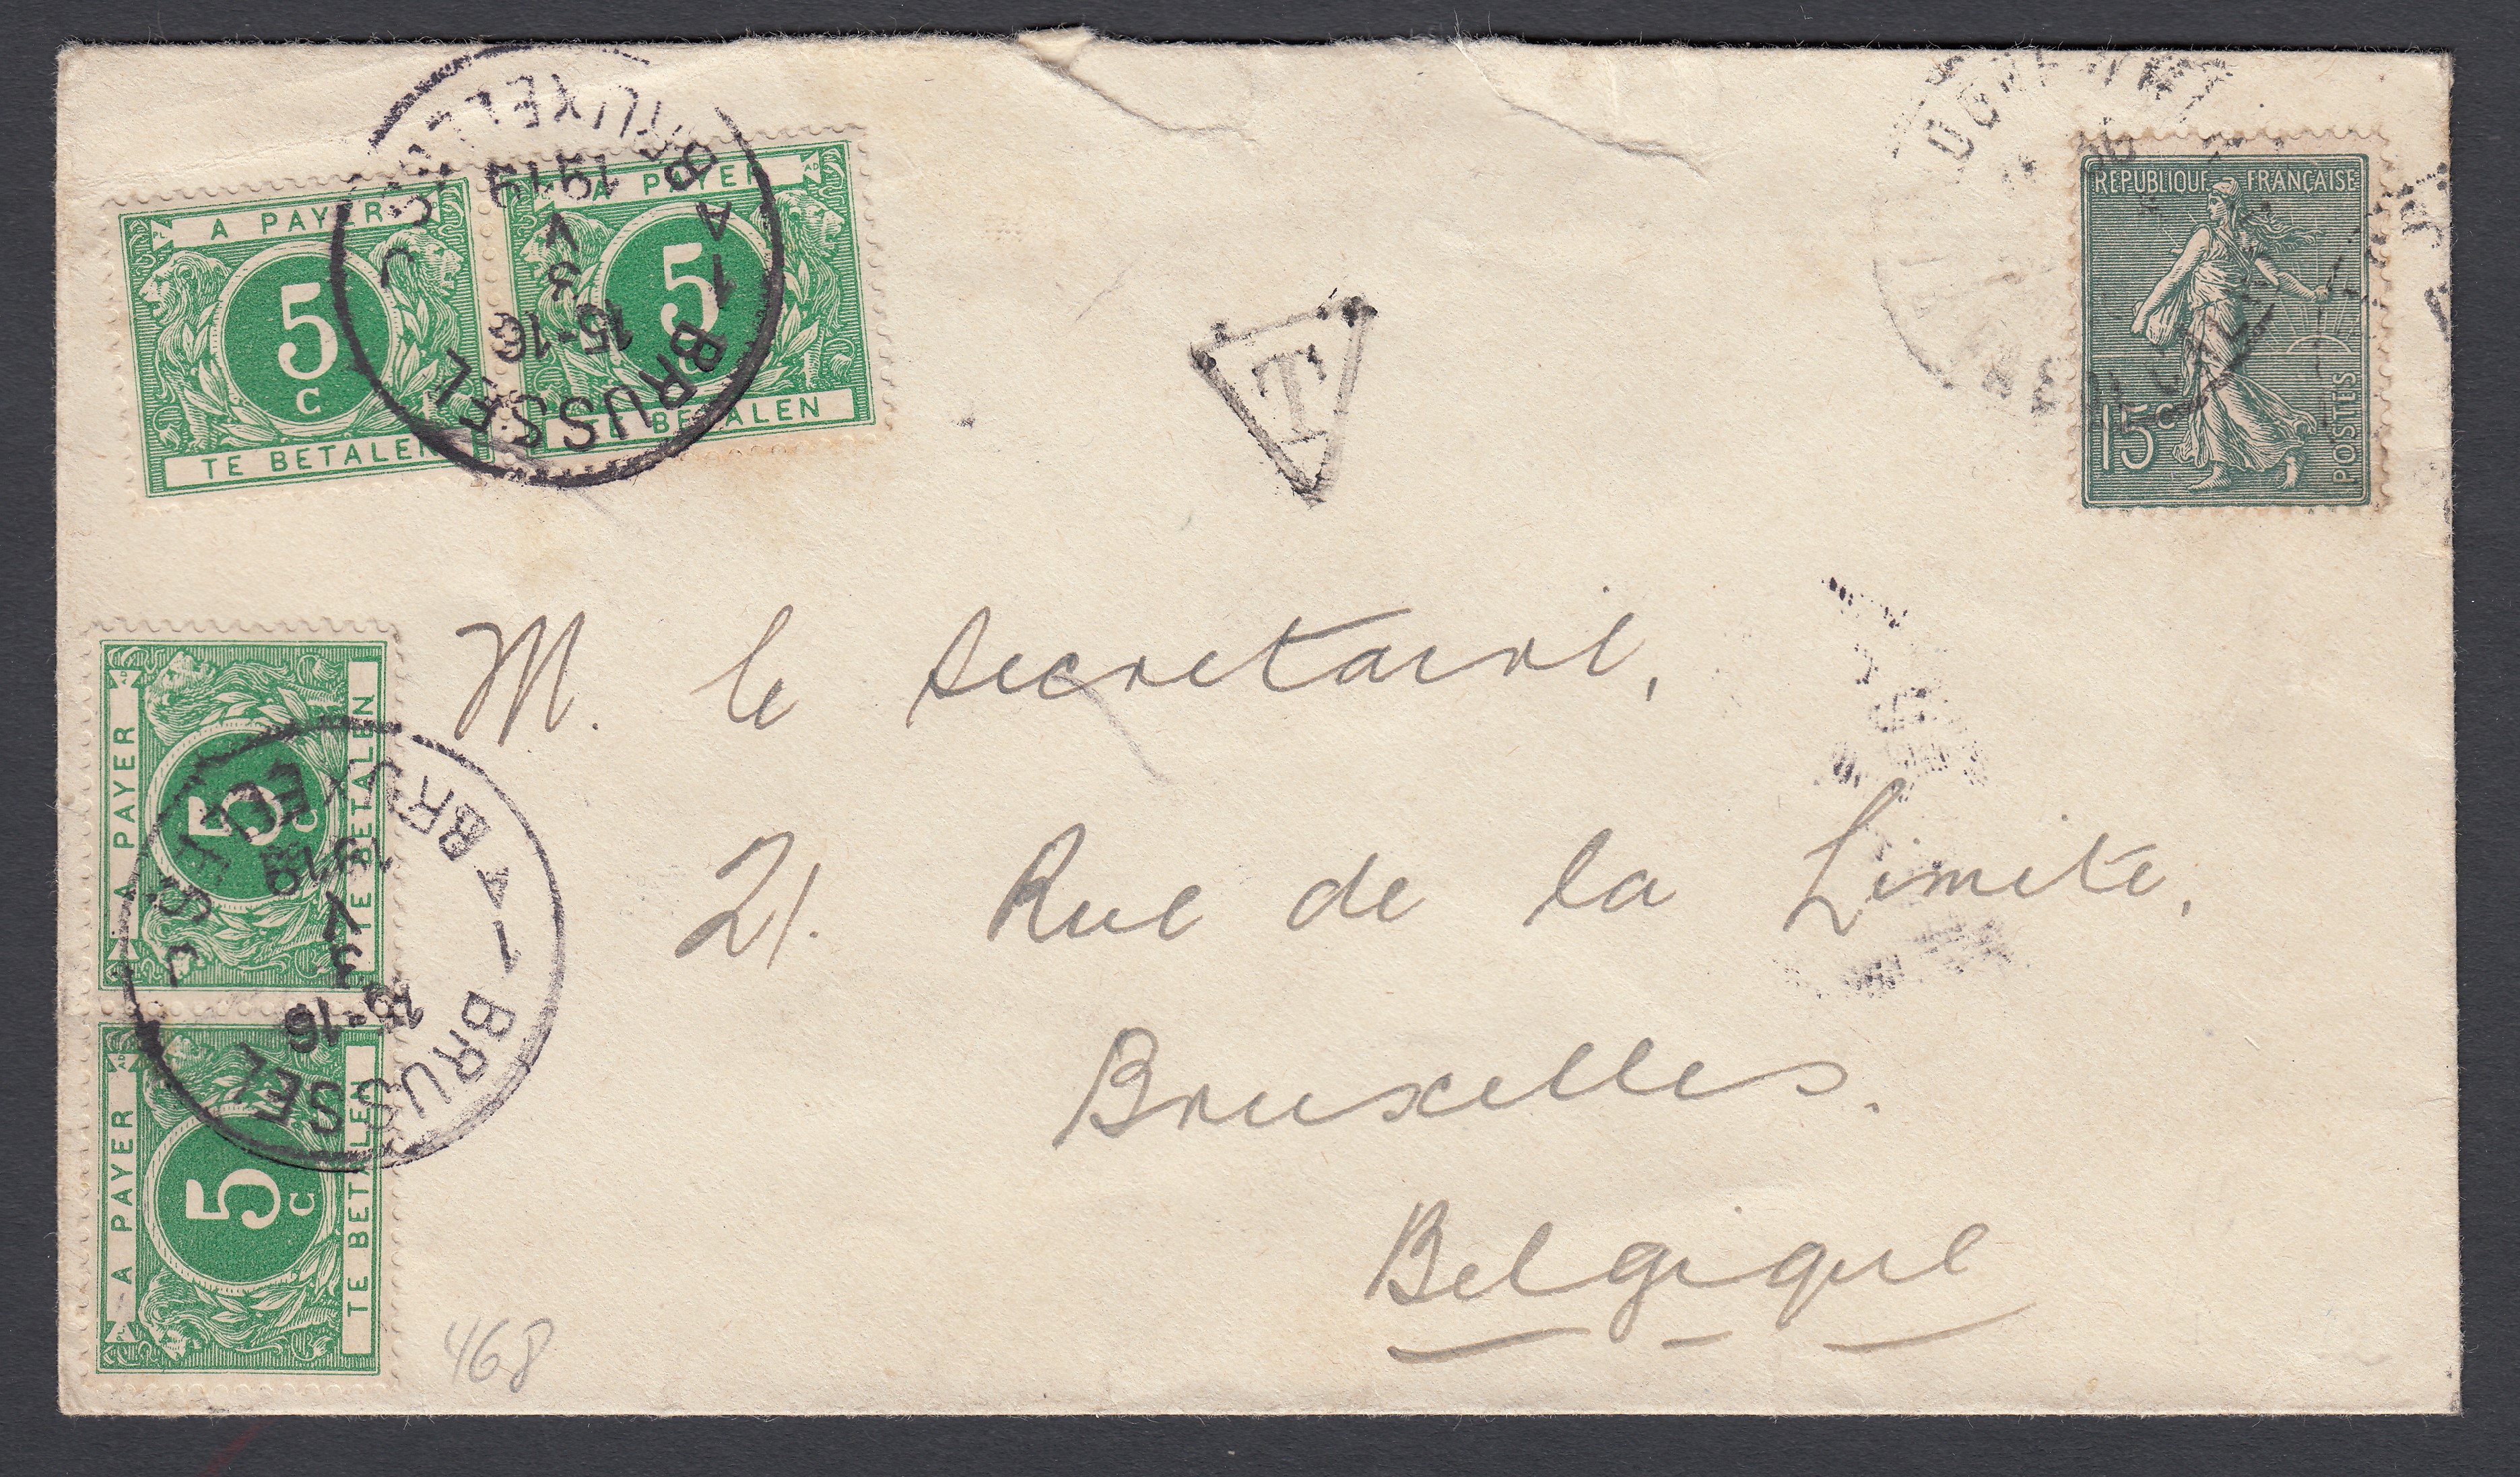 A PAYER
5
C
TE BETALEN
A PAYER
5
TE BETALEN
BRUXELLES
1919
V
3
15-16
1 A
BRUSSEL
T
REPUBLIQUE FRANÇAISE
15c
POSTES
M. le Secretaire,
21. Rue de la Limite,
Bruxelles.
Belgique
A PAYER
5
C
TE BETALEN
A PAYER
5
C
TE BETALEN
BRUXELLES
1919
V
3
15-16
1 A
BRUSSEL
468